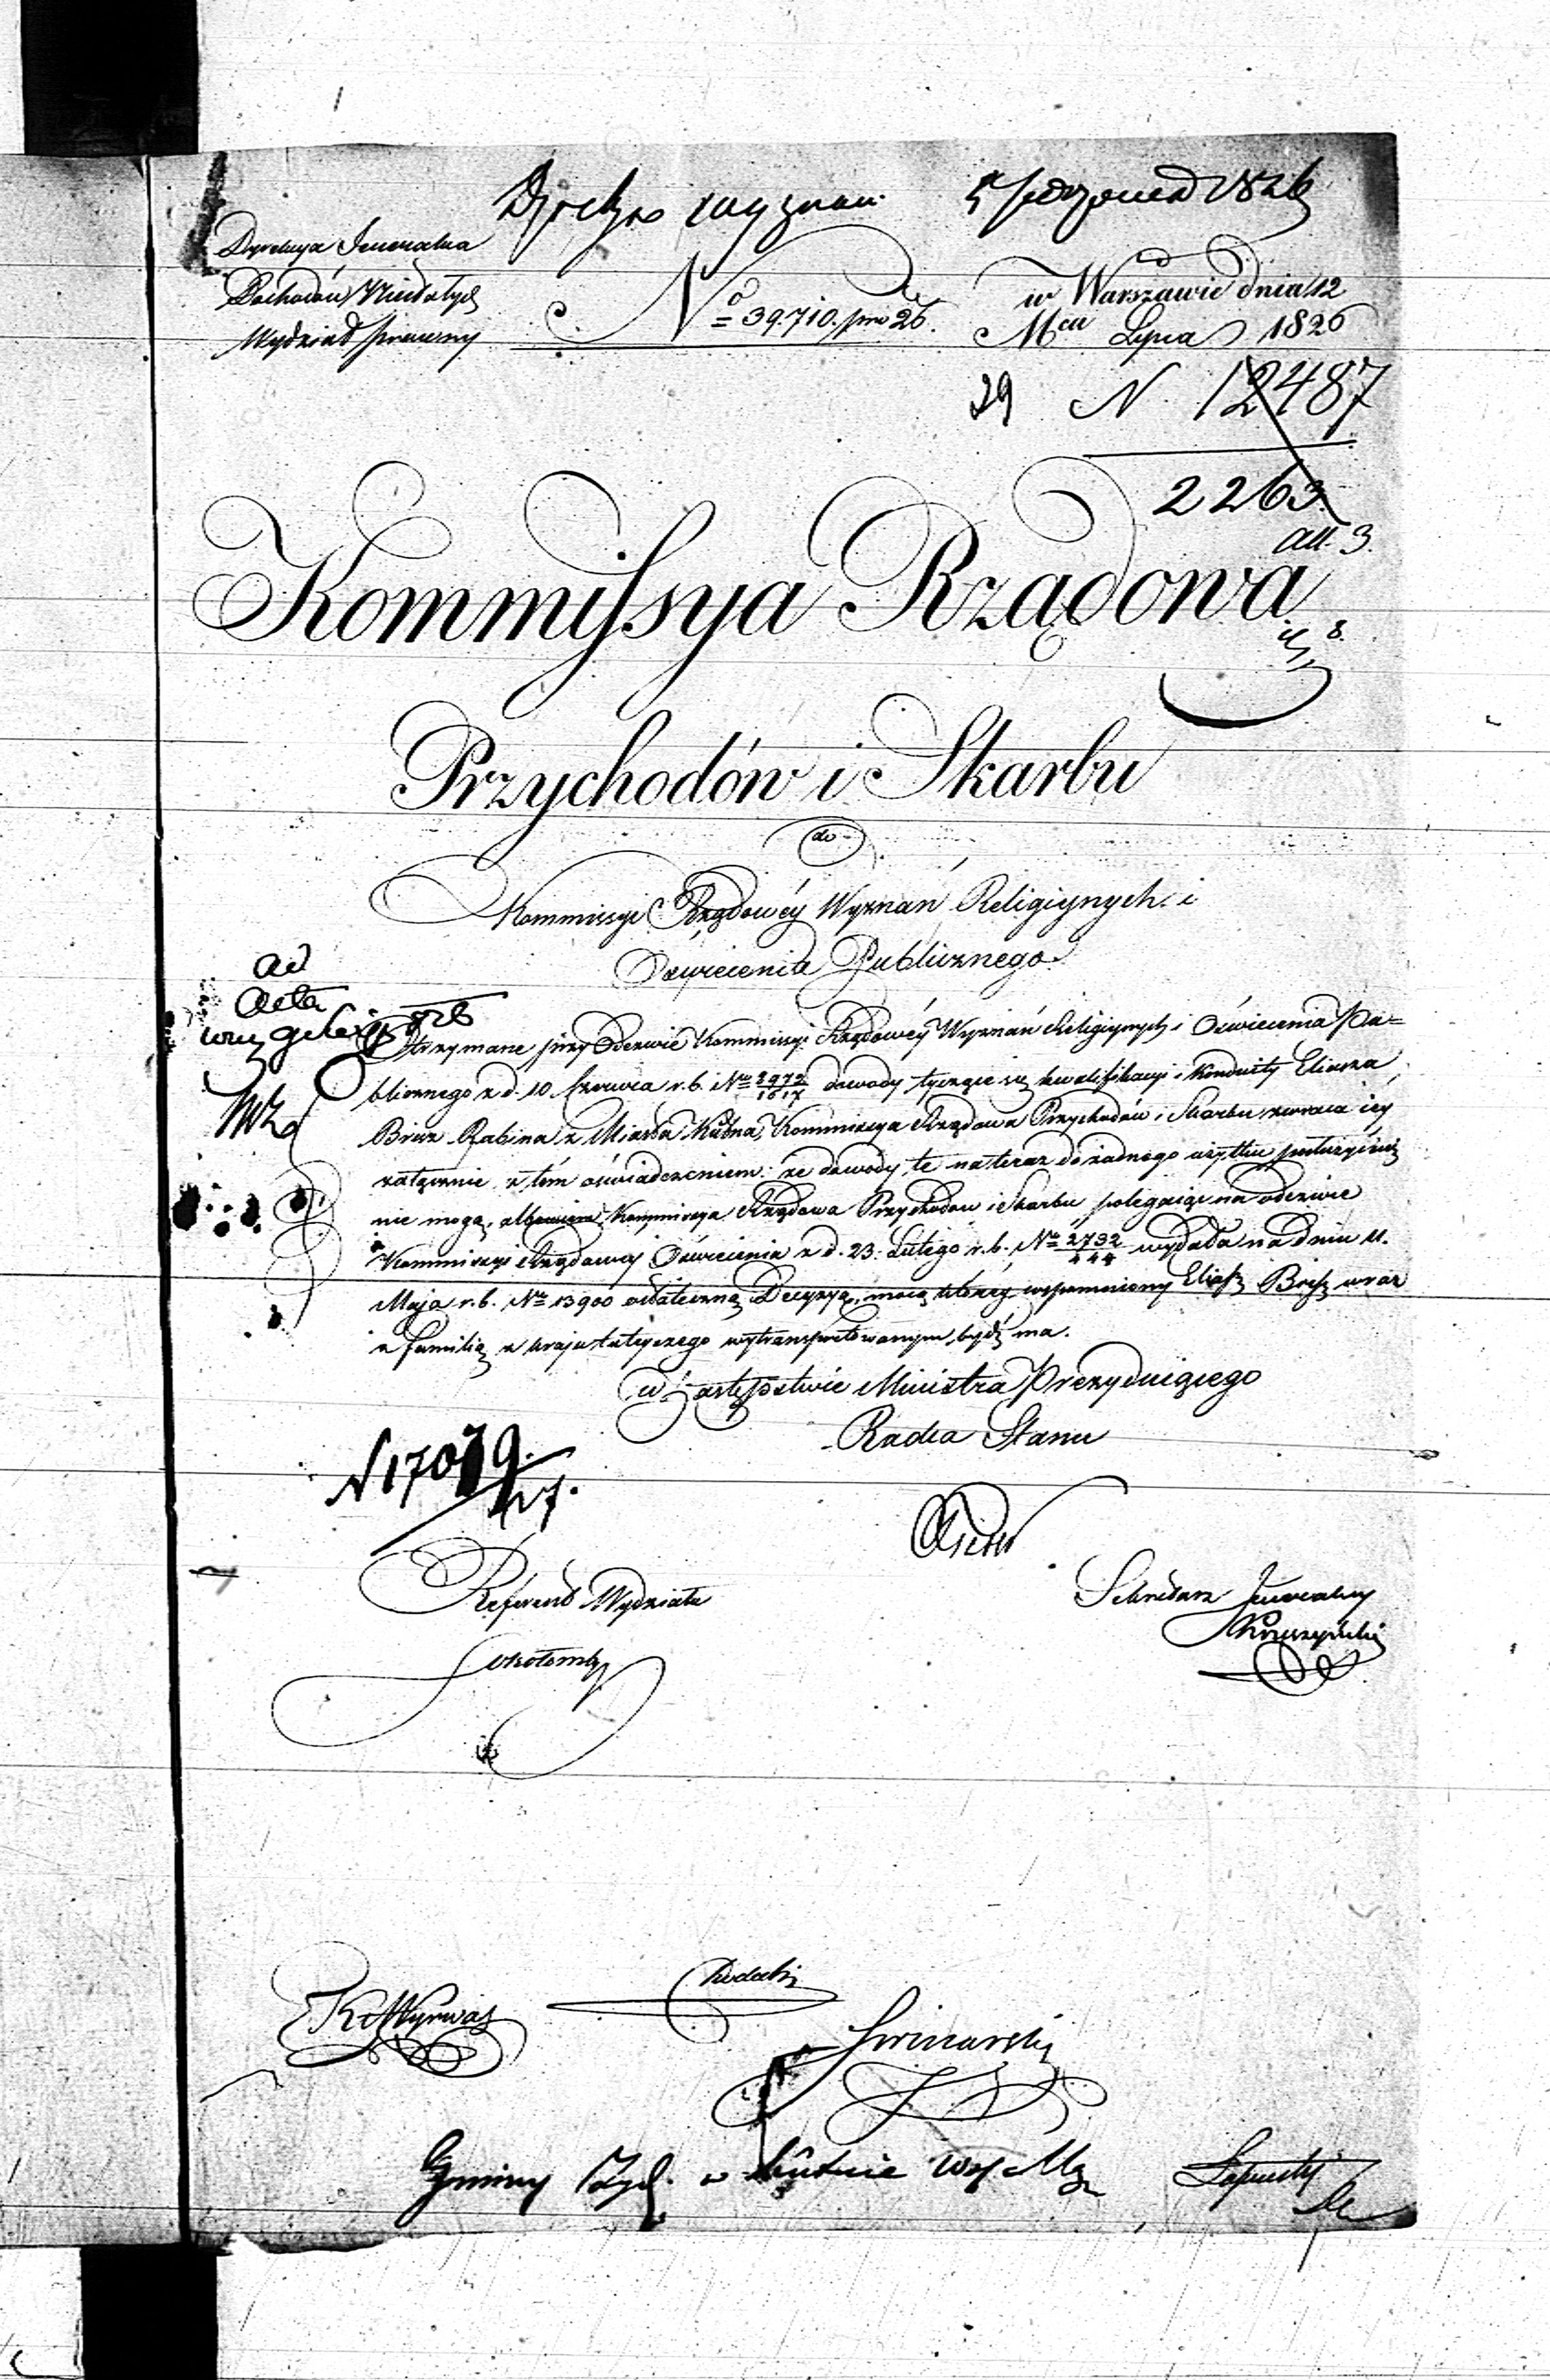 5 Sierpnia 1826
Dyrekcya Jeneralna
Dochodów Niestałych
Wydział prawny
No 39.710. pro 26.
w Warszawie dnia 12
Mca Lipca 1826
29 N. 12487
2263.
All. 3.
Kommissya Rządowa
Przychodów i Skarbu
do
Kommissyi Rządowéy Wyznań Religiynych i
Oświecenia Publicznego
ad
acta
Otrzymane przy Odezwie Kommissyi Rządowéy Wyznań Religiynych i Oświecenia Pu=
blicznego z d. 10 Czerwca r. b. Nro 3972/1617 dowody tyczące się kwalifikacyi i Konduity Eliasza
Brisz Rabina z Miasta Kutna, Kommissya Rządowa Przychodów i Skarbu zwraca iey
załącznie z tém oświadczeniem: że dowody te na teraz do żadnego użytku posłużyć iuż
nie mogą, albowiem Kommissya Rządowa Przychodów i Skarbu polegaiąc na odezwie
Kommissyi Rządowey Oświecenia z d. 23. Lutego r. b. Nro 2732/444 wydała na dniu 11.
Maja r. b. Nro 13900 ostateczną Decyzyą, mocą któréy wspomniony Eliasz Brisz wraz
z familią z kraju tuteyszego wytransportowanym bydź ma.
w Zastępstwie Ministra Prezyduiącego
Radca Stanu
N 17079.
/27.
Referend. Wydziału
Sekretarz Jeneralny
Sokołowski
Gminy Żyd. w Kutnie